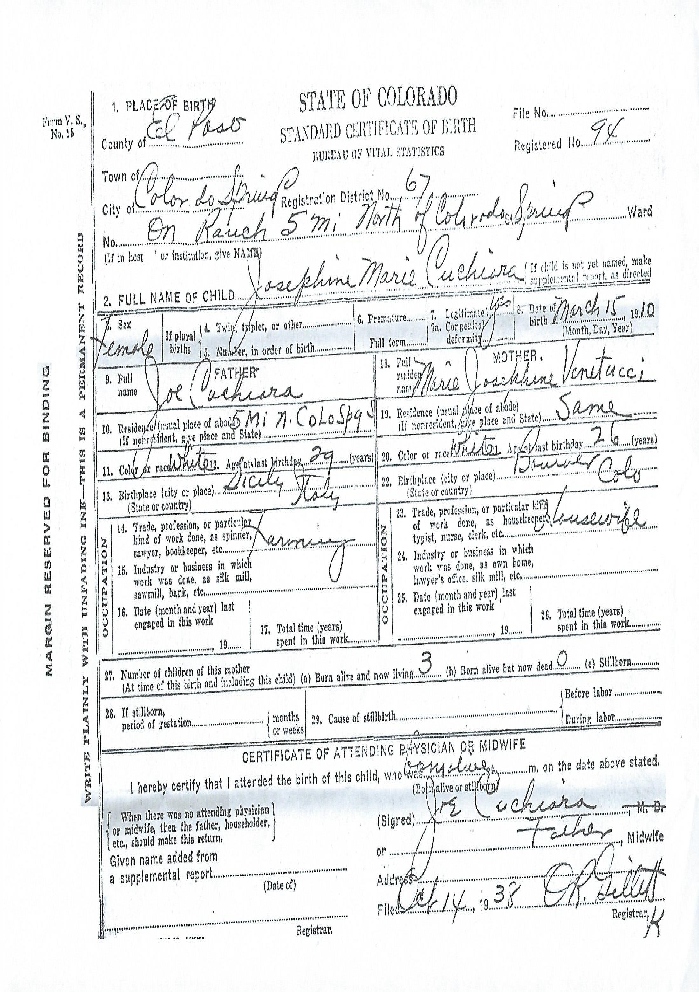 Form V. S., No. 15
MARGIN RESERVED FOR BINDING
WRITE PLAINLY WITH UNFADING INK—THIS IS A PERMANENT RECORD
STATE OF COLORADO
STANDARD CERTIFICATE OF BIRTH
BUREAU OF VITAL STATISTICS
File No.
Registered No. 94
1. PLACE OF BIRTH
County of El Paso
Town of
City of Colorado Springs Registration District No. 67
No. On Ranch 5 Mi North of Colorado Springs Ward
(If in hosp or institution, give NAME)
2. FULL NAME OF CHILD Josephine Marie Cuchiara (If child is not yet named, make supplemental report, as directed
3. Sex Female
If plural births
4. Twin, triplet, or other
5. Number, in order of birth
6. Premature
Full term
7. Legitimate yes
7a. Congenital deformity
8. Date of birth March 15 1910
(Month, Day, Year)
FATHER
9. Full name Joe Cuchiara
10. Residence (usual place of abode) 5 Mi N. Colo Spgs
(If nonresident, give place and State)
11. Color or race White 12. Age at last birthday 29 (years)
13. Birthplace (city or place) Sicily Italy
(State or country)
OCCUPATION
14. Trade, profession, or particular kind of work done, as spinner, sawyer, bookkeeper, etc. Farming
15. Industry or business in which work was done, as silk mill, sawmill, bank, etc.
16. Date (month and year) last engaged in this work
, 19
17. Total time (years) spent in this work
MOTHER
18. Full maiden name Marie Josephine Venetucci
19. Residence (usual place of abode) Same
(If nonresident, give place and State)
20. Color or race White 21. Age at last birthday 26 (years)
22. Birthplace (city or place) Denver Colo
(State or country)
OCCUPATION
23. Trade, profession, or particular kind of work done, as housekeeper, typist, nurse, clerk, etc. Housewife
24. Industry or business in which work was done, as own home, lawyer's office, silk mill, etc.
25. Date (month and year) last engaged in this work
, 19
26. Total time (years) spent in this work
27. Number of children of this mother
(At time of this birth and including this child) (a) Born alive and now living 3 (b) Born alive but now dead 0 (c) Stillborn
28. If stillborn, period of gestation months or weeks
29. Cause of stillbirth
Before labor
During labor
CERTIFICATE OF ATTENDING PHYSICIAN OR MIDWIFE
I hereby certify that I attended the birth of this child, who was m. on the date above stated.
(Born alive or stillborn)
When there was no attending physician or midwife, then the father, householder, etc., should make this return.
(Signed) Joe Cuchiara, M. D.
or Father, Midwife
Given name added from a supplemental report
(Date of)
Address
Filed 14, 1938 Gillett
Registrar.
Registrar.
K